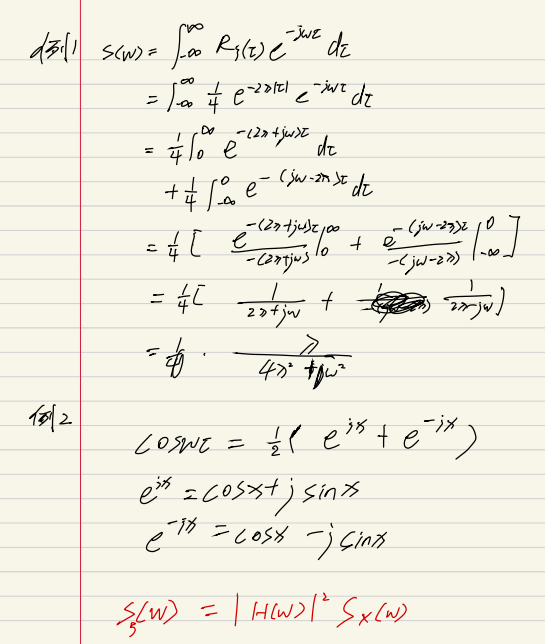 例1 S(ω) = ∫_{-∞}^{∞} R_ξ(τ) e^{-jωτ} dτ
= ∫_{-∞}^{∞} 1/4 e^{-2λ|τ|} e^{-jωτ} dτ
= 1/4 ∫_0^∞ e^{-(2λ+jω)τ} dτ
+ 1/4 ∫_{-∞}^0 e^{-(jω-2λ)τ} dτ
= 1/4 [ e^{-(2λ+jω)τ}/-(2λ+jω) |_0^∞ + e^{-(jω-2λ)τ}/-(jω-2λ) |_{-∞}^0 ]
= 1/4 [ 1/(2λ+jω) + 1/(2λ-jω) ]
= · λ/(4λ² + ω²)
例2
cosωτ = 1/2 ( e^{jx} + e^{-jx} )
e^{jx} = cosx + j sinx
e^{-jx} = cosx - j sinx
S_ξ(ω) = |H(ω)|² S_X(ω)